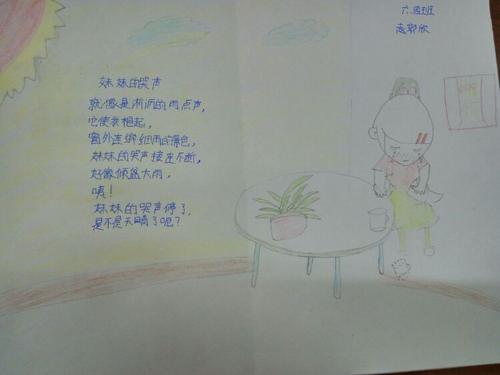 六四班
妹妹的哭声
就像是淅沥的雨点声,
它使我想起,
窗外连绵细雨的景色,
妹妹的哭声接连不断,
好像倾盆大雨,
咦!
妹妹的哭声停了,
是不是天晴了呢?